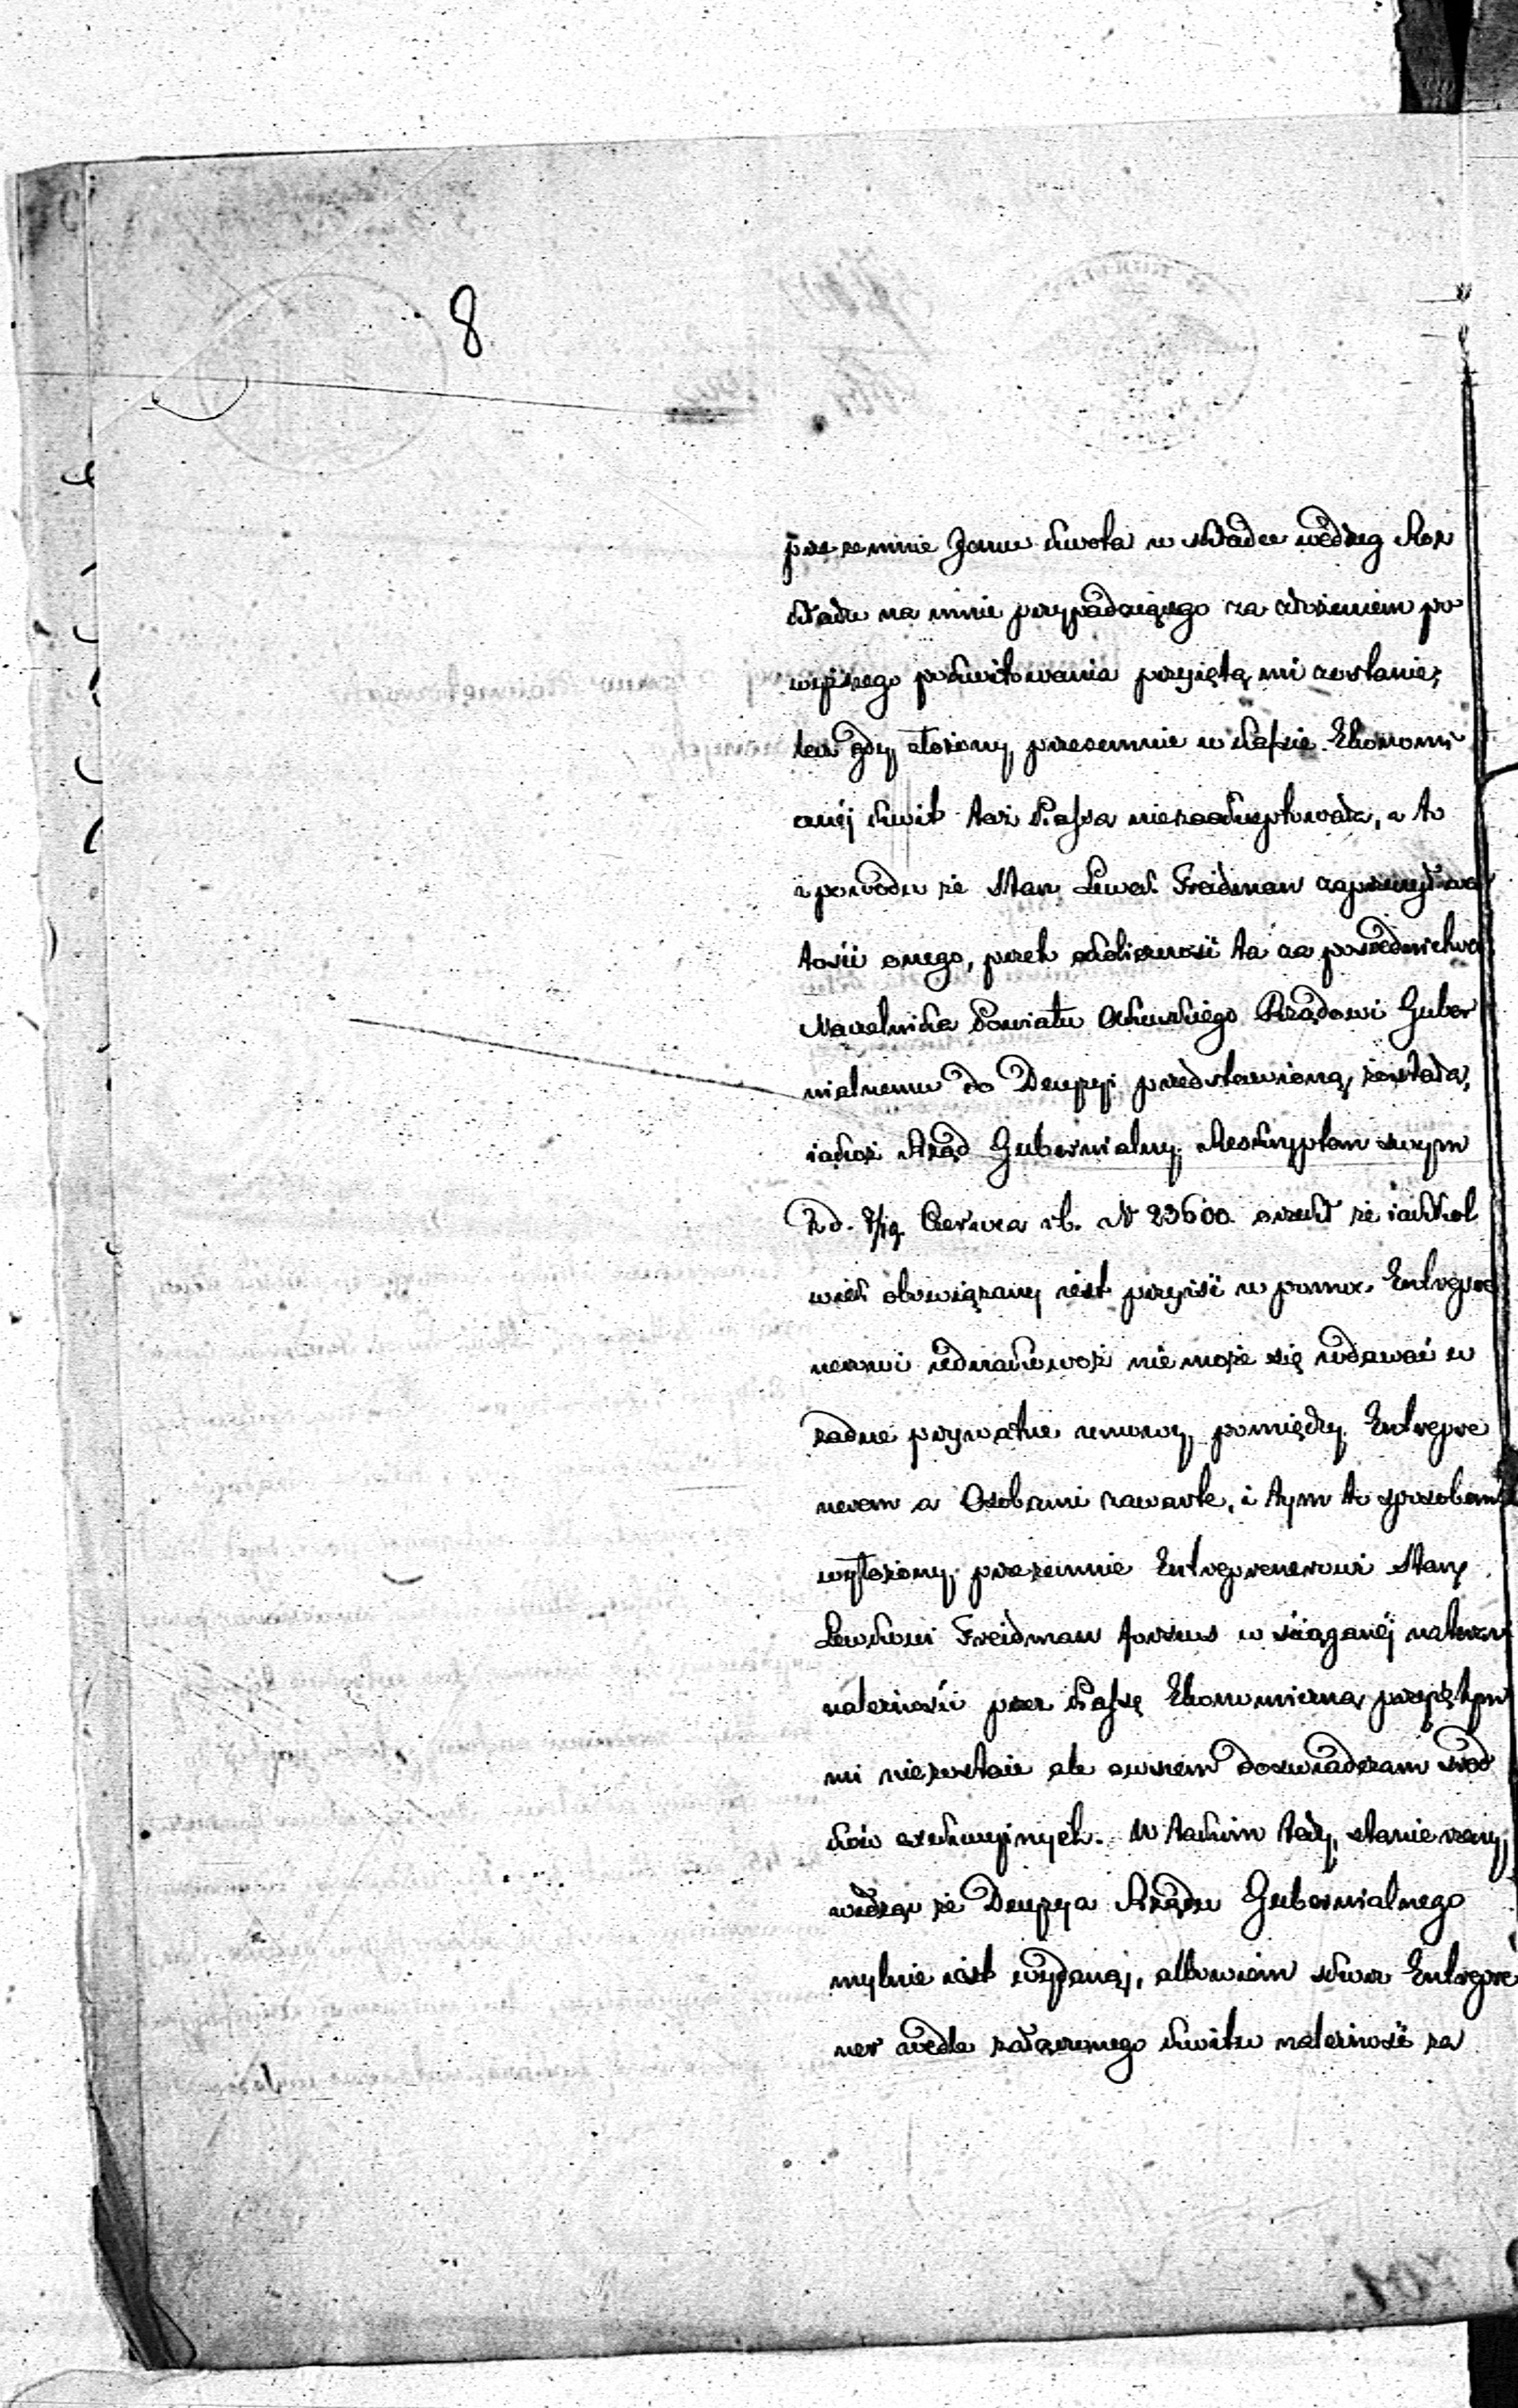 8
przezemnie Janu kwota w składce według Roz
kładu na mnie przypadaiącego za złożeniem po
wyższego pokwitowania przyiętą mi zostanie;
lecz gdy złożony przezemnie w Kassie Ekonomi
cznéj kwit taż Kassa niezaakceptowała, a to
z powodu że Star. Lewek Freidman zaprzeczył
tości onego, przeto okoliczność ta za pośrednictwem
Naczelnika Powiatu Olkuskiego Rządowi Guber
nialnemu do Decyzyi przedstawioną została,
iakoż Rząd Gubernialny Reskryptem swym
z d. 7/19 Czerwca r.b. N 23600 orzekł że iakkol
wiek obowiązany iest przyiść w pomoc Entrepre
nerowi iednakowoż nie może się wdawać w
żadne prywatne umowy pomiędzy Entrepre
nerem a Osobami zawarte, i tym to sposobem
wyłożony przezemnie Entreprenerowi Star.
Lewkowi Freidman forszus w ściąganéj
należności przez Kassę Ekonomiczną przyiętym
mi niezostaie ale owszem doświadczam środ
ków exekucyinych. W takim tedy stanie rzeczy,
widząc że Decyzya Rządu Gubernialnego
mylnie iest wydaną, albowiem skoro Entrepre
ner wedle załączonego kwitu należność za